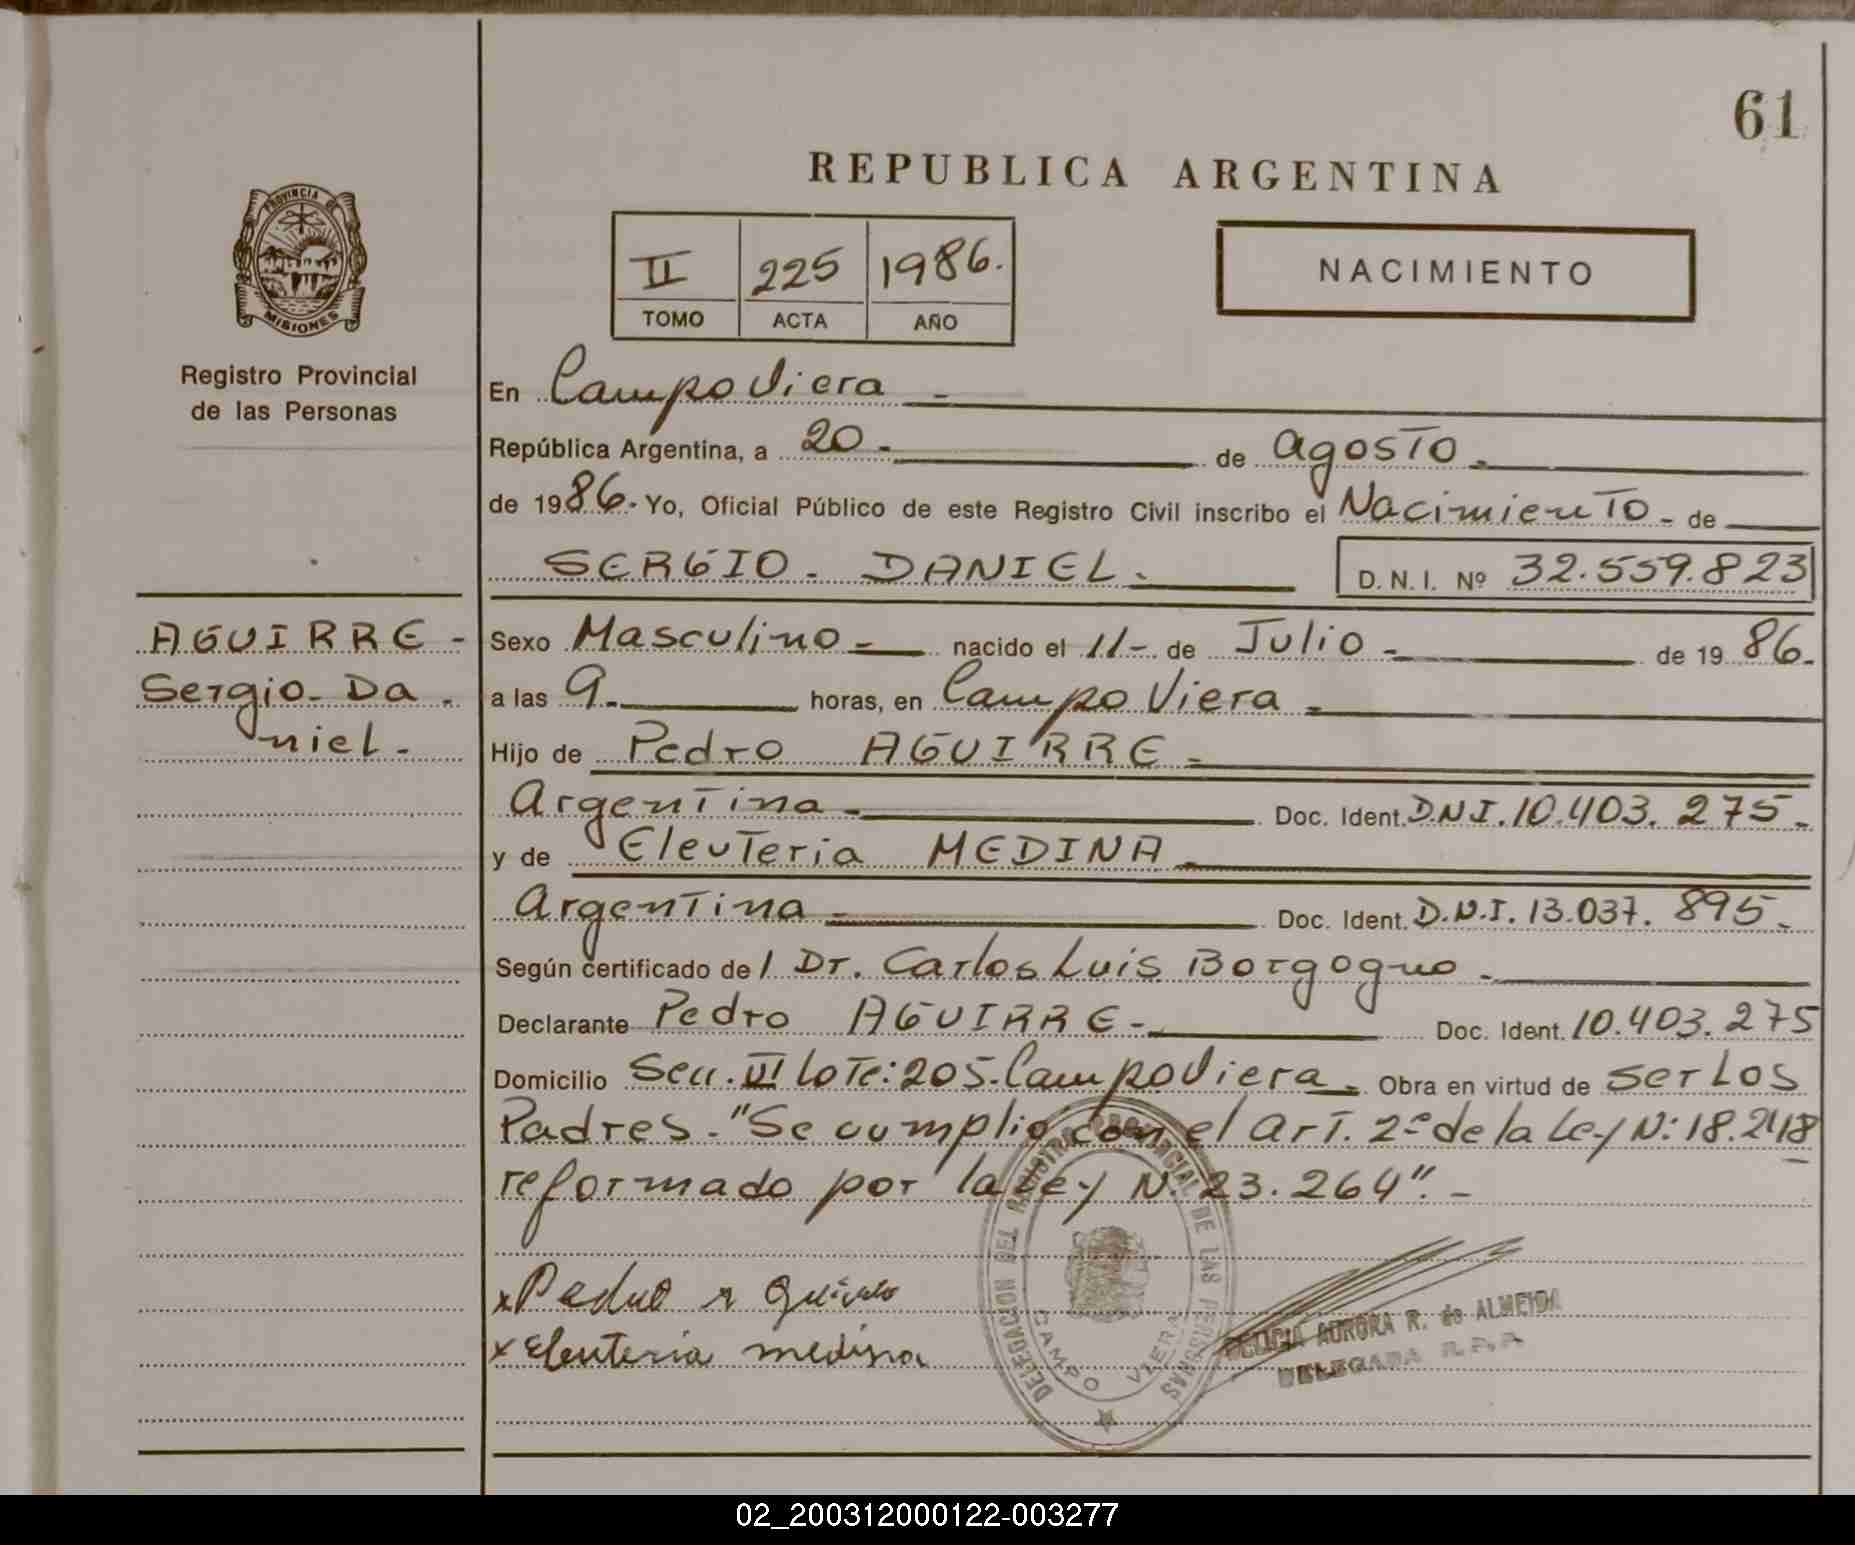 61
REPUBLICA ARGENTINA
PROVINCIA DE
MISIONES
Registro Provincial
de las Personas
II 225 1986.
TOMO ACTA AÑO
NACIMIENTO
En Campo Viera -
República Argentina, a 20 - de agosto -
de 1986.- Yo, Oficial Público de este Registro Civil inscribo el Nacimiento - de
SERGIO - DANIEL - D. N. I. Nº 32.559.823
AGUIRRE -
Sergio - Da -
niel -
Sexo Masculino - nacido el 11 - de Julio - de 1986.
a las 9 - horas, en Campo Viera -
Hijo de Pedro AGUIRRE -
Argentina - Doc. Ident. D.N.I. 10.403.275 -
y de Eleuteria MEDINA -
Argentina - Doc. Ident. D.N.I. 13.037.895 -
Según certificado de l Dr. Carlos Luis Borgogno -
Declarante Pedro AGUIRRE - Doc. Ident. 10.403.275
Domicilio Secc. VI Lote: 205 - Campo Viera - Obra en virtud de ser Los
Padres - "Se cumplio con el Art. 2º de la Ley N: 18.248
reformado por la Ley N: 23.264". -
x Pedro
x Eleuteria medina
DELEGACION DEL REGISTRO PROVINCIAL DE LAS PERSONAS
CAMPO VIERA
DELICIA AURORA R. de ALMEIDA
DELEGADA R.P.P.
02_200312000122-003277